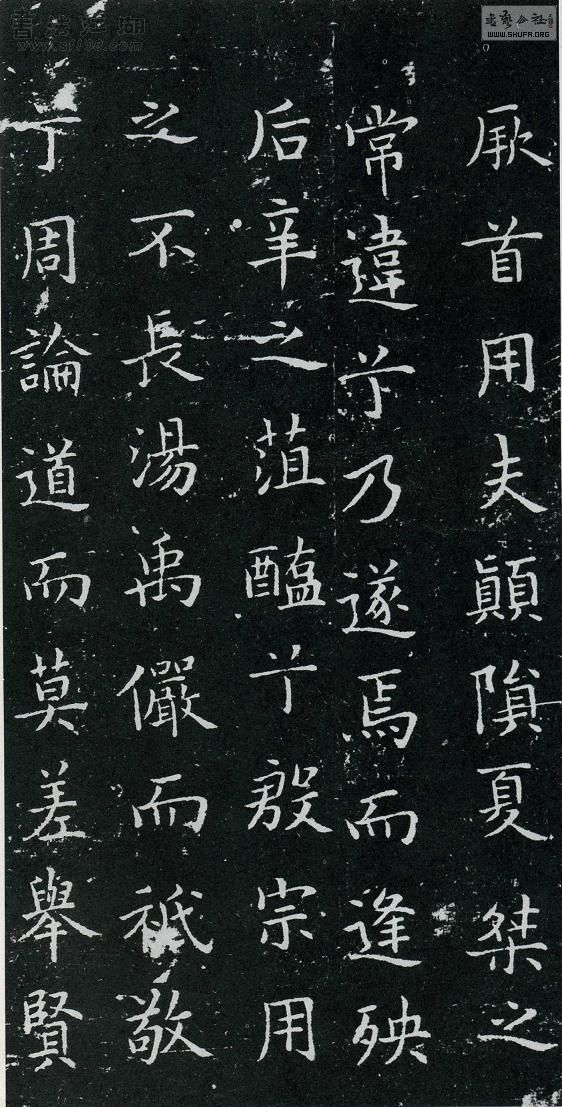 厥首用夫顛隕夏桀之
常違兮乃遂焉而逢殃
后辛之菹醢兮殷宗用
之不長湯禹儼而祗敬
兮周論道而莫差舉賢
書法江湖
书艺公社
WWW.SHUFA.ORG